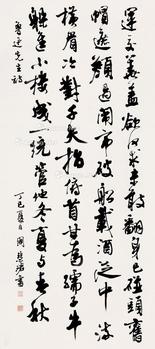 運交華蓋欲何求未敢翻身已碰頭舊
帽遮顏過鬧市破船載酒泛中流
橫眉冷對千夫指俯首甘為孺子牛
躲進小樓成一統管他冬夏與春秋
魯迅先生詩
丁巳夏日 周慧珺書